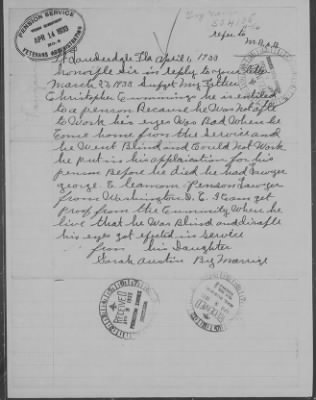 PENSION SERVICE
APR 14 1933
VETERANS ADMINISTRATION
refer to
Ft Lauderdale, Fla April 6, 1933
honorple Sir in reply to your letter
March 27 1933 Subject My Father
Christopher Cummings he is entitled
to a penson Because he Was Not able
to Work his eyes Was Bad When he
Come home from the Service and
he Went Blind and Could Not Work
he put in his application for his
penson Before he died he had Lawyer
george. E. Leamom Penson Lawyer
from Washington D. C. I Can get
proof from the Community Where he
live that he Was Blind and disable
his eyes got efected in service
from his Daughter
Sarah Austin By Marrige
RECEIVED